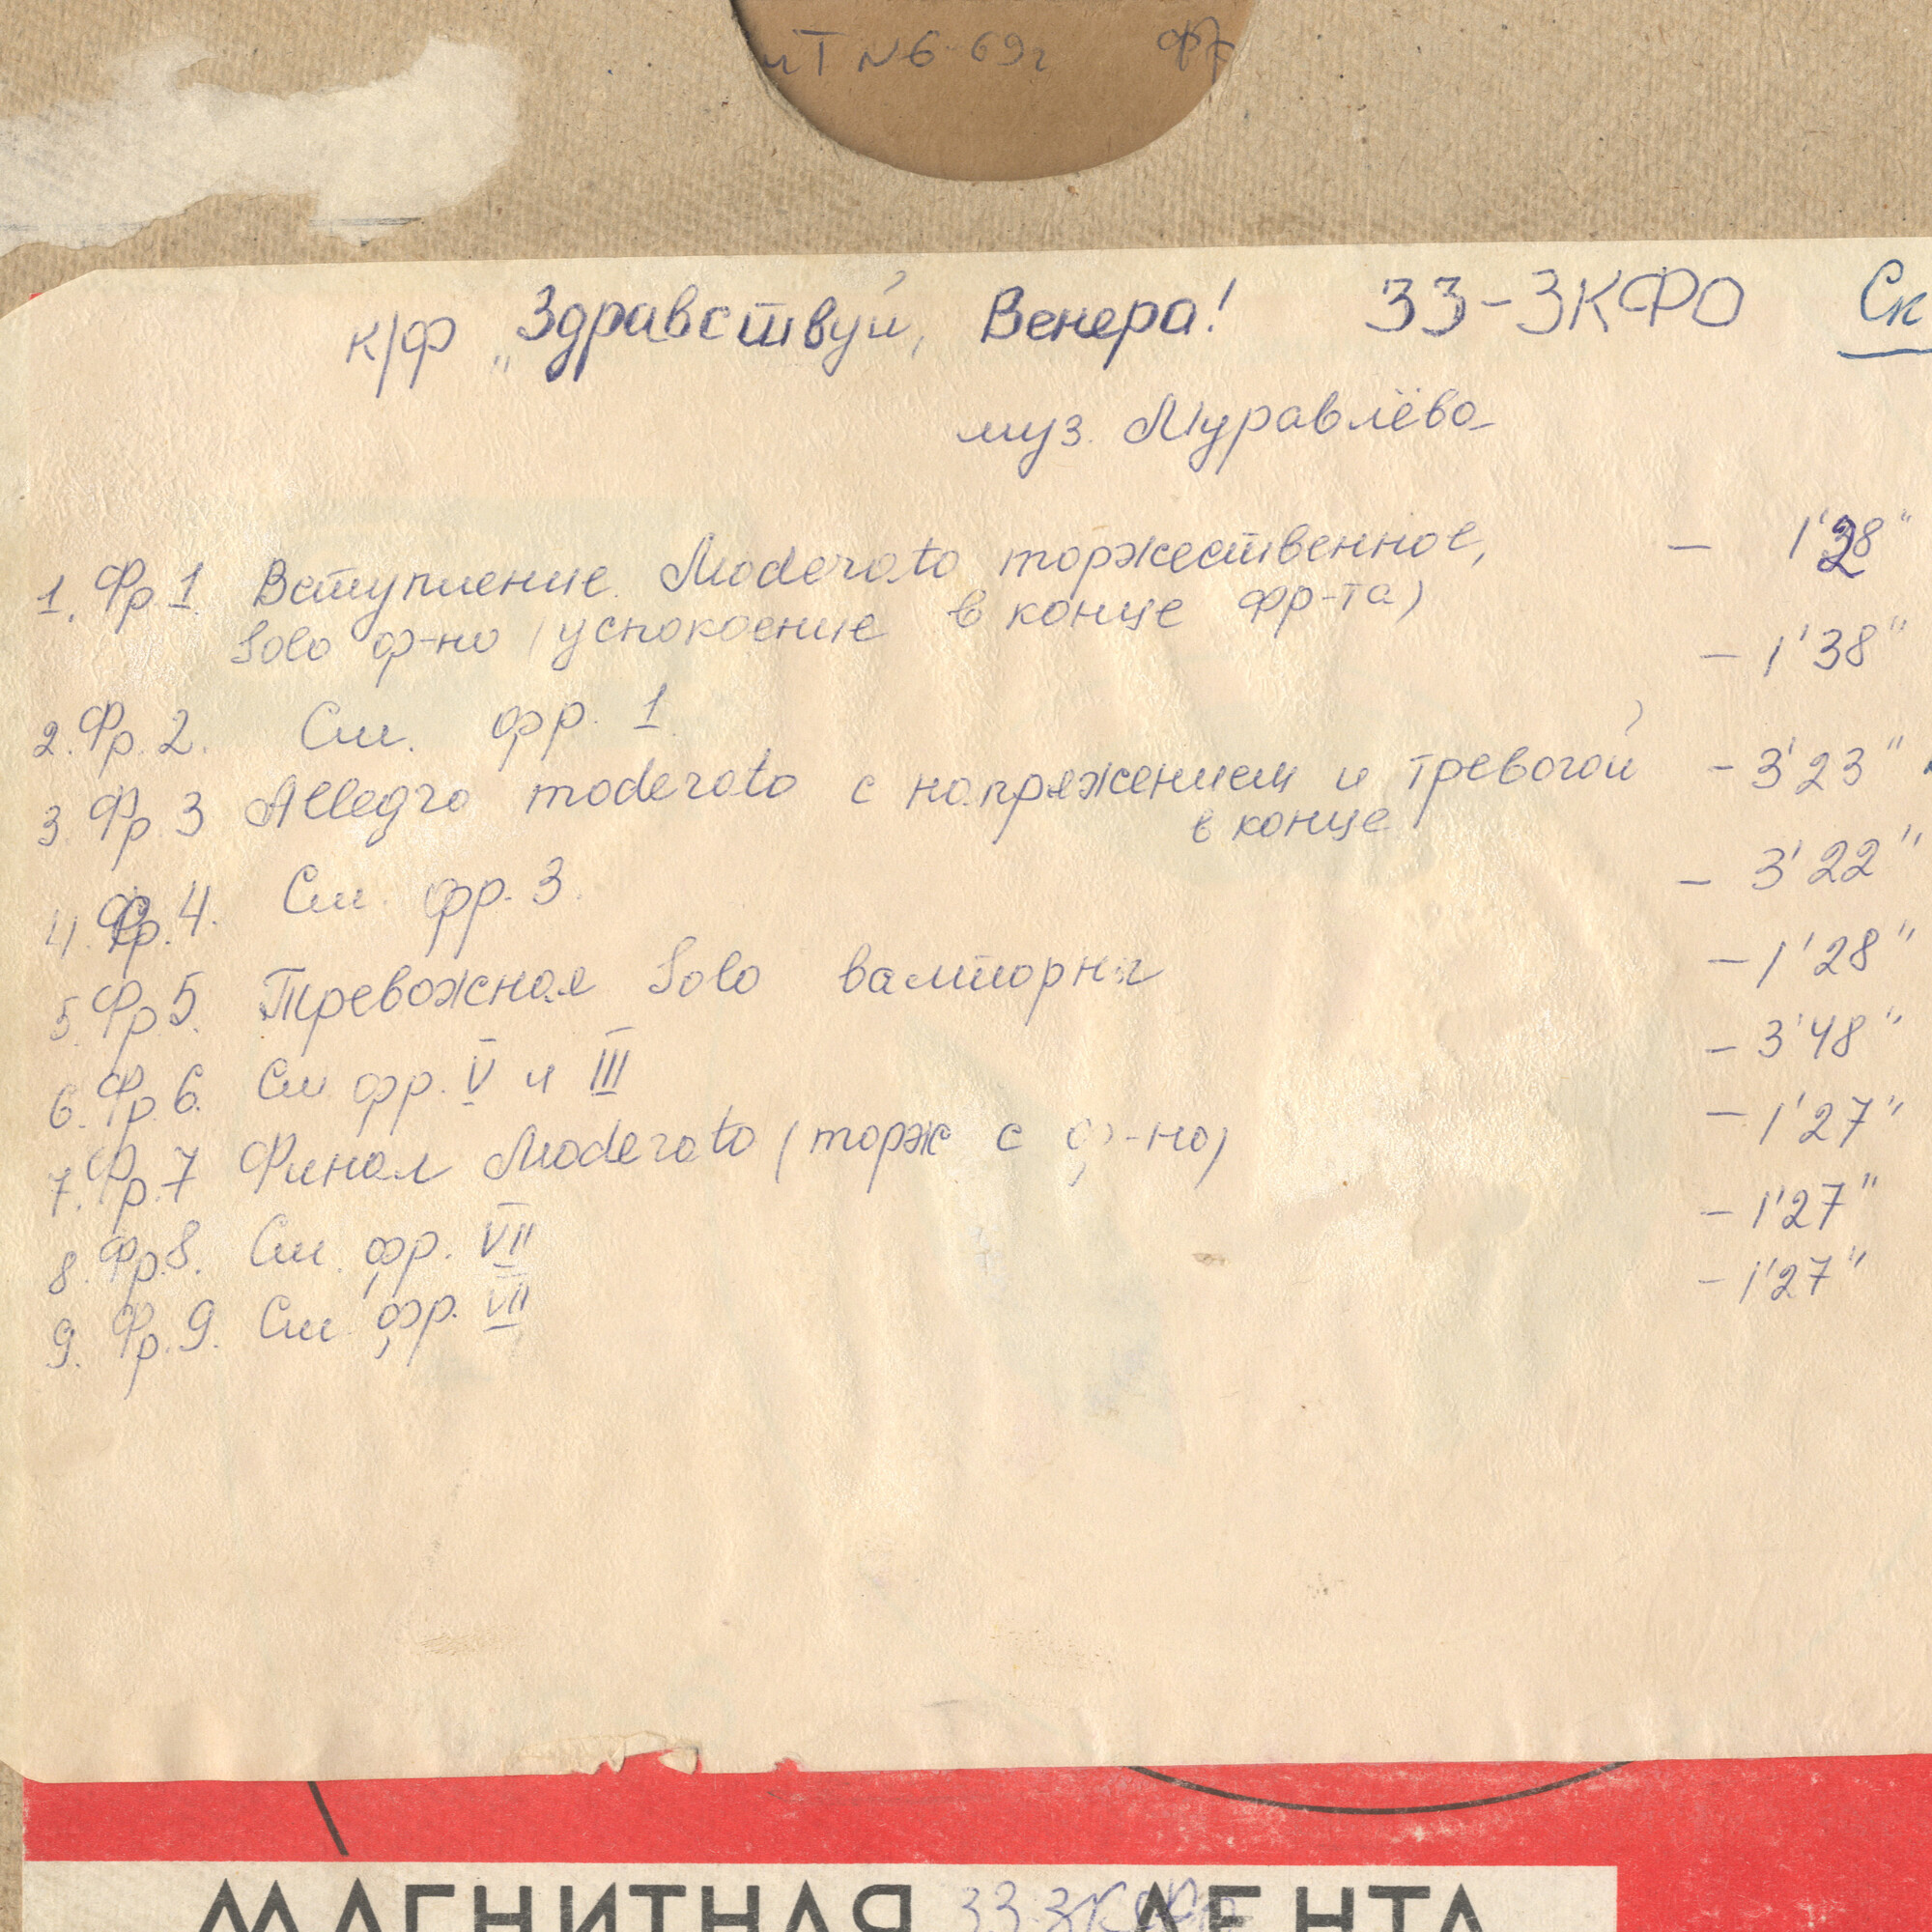 иТ N6-69г
к/ф „Здравствуй, Венера! 33-ЗКФО Ск
муз. Муравлёва
1. Фр. 1. Вступление. Moderato торжественное, — 1'28"
Solo ф-но (успокоение в конце фр-та)
2. Фр. 2. См. фр. 1 — 1'38"
3. Фр. 3 Allegro moderato с напряжением и тревогой — 3'23"
в конце
4. Фр. 4. См. фр. 3. — 3'22"
5. Фр. 5. Тревожная Solo валторны — 1'28"
6. Фр. 6. См фр. V и III — 3'48"
7. Фр. 7 Финал Moderato (торж с ф-но) — 1'27"
8. Фр. 8. См. фр. VII — 1'27"
9. Фр. 9. См. фр. VII — 1'27"
МАГНИТНАЯ ЛЕНТА